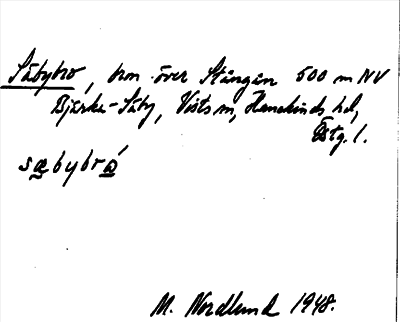 Säbybro, bron över Stångån 500 m NV
Bjärka-Säby, Vists sn, Hanekinds hd,
Östg. l.
sæbybró̲
M. Nordlund 1948.